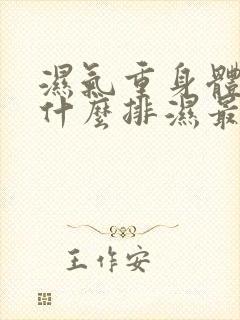 濕氣重身體
什麼排濕最
王作安